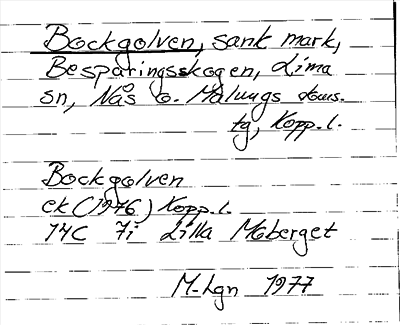 Bockgolven, sank mark,
Besparingsskogen, Lima
sn, Nås o. Malungs doms.
tg, Kopp.l.
Bockgolven
ek (1976) Kopp.l.
14C 7i Lilla Moberget
M.Lgn 1977